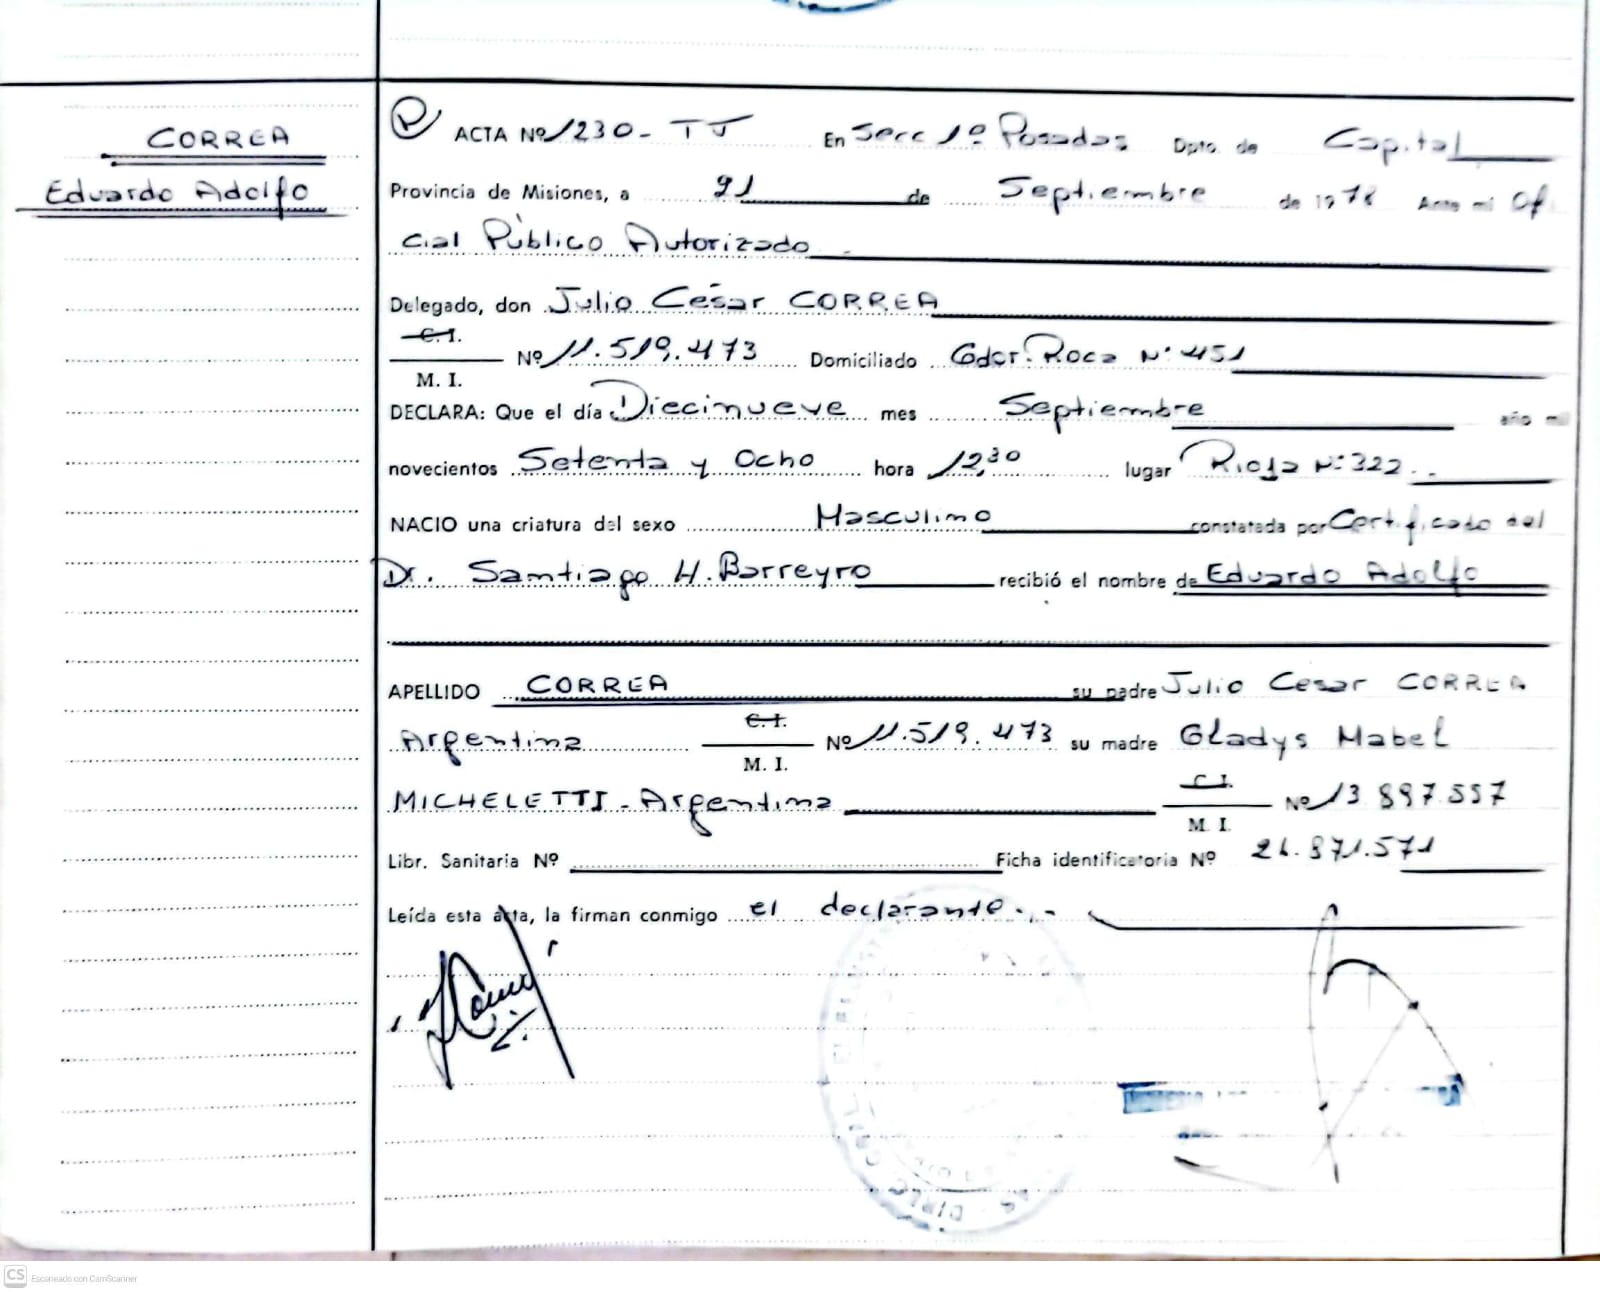 CORREA
Eduardo Adolfo
ACTA Nº 1230 - TJ En Secc 1º Posadas Dpto. de Capital
Provincia de Misiones, a 21 de Septiembre de 1978 Ante mi Ofi
cial Público Autorizado
Delegado, don Julio César CORREA
C.I.
Nº 11.519.473 Domiciliado Gdor. Roca Nº 451
M. I.
DECLARA: Que el día Diecinueve mes Septiembre año mil
novecientos Setenta y Ocho hora 12,30 lugar Rioja Nº 322
NACIO una criatura del sexo Masculino constatada por Certificado del
Dr. Santiago H. Barreyro recibió el nombre de Eduardo Adolfo
APELLIDO CORREA su padre Julio Cesar CORREA
C.I.
Argentina Nº 11.519.473 su madre Gladys Mabel
M. I.
C.I.
MICHELETTI - Argentina Nº 13 897.557
M. I.
Libr. Sanitaria Nº Ficha identificatoria Nº 26.871.571
Leída esta acta, la firman conmigo el declarante
CS Escaneado con CamScanner